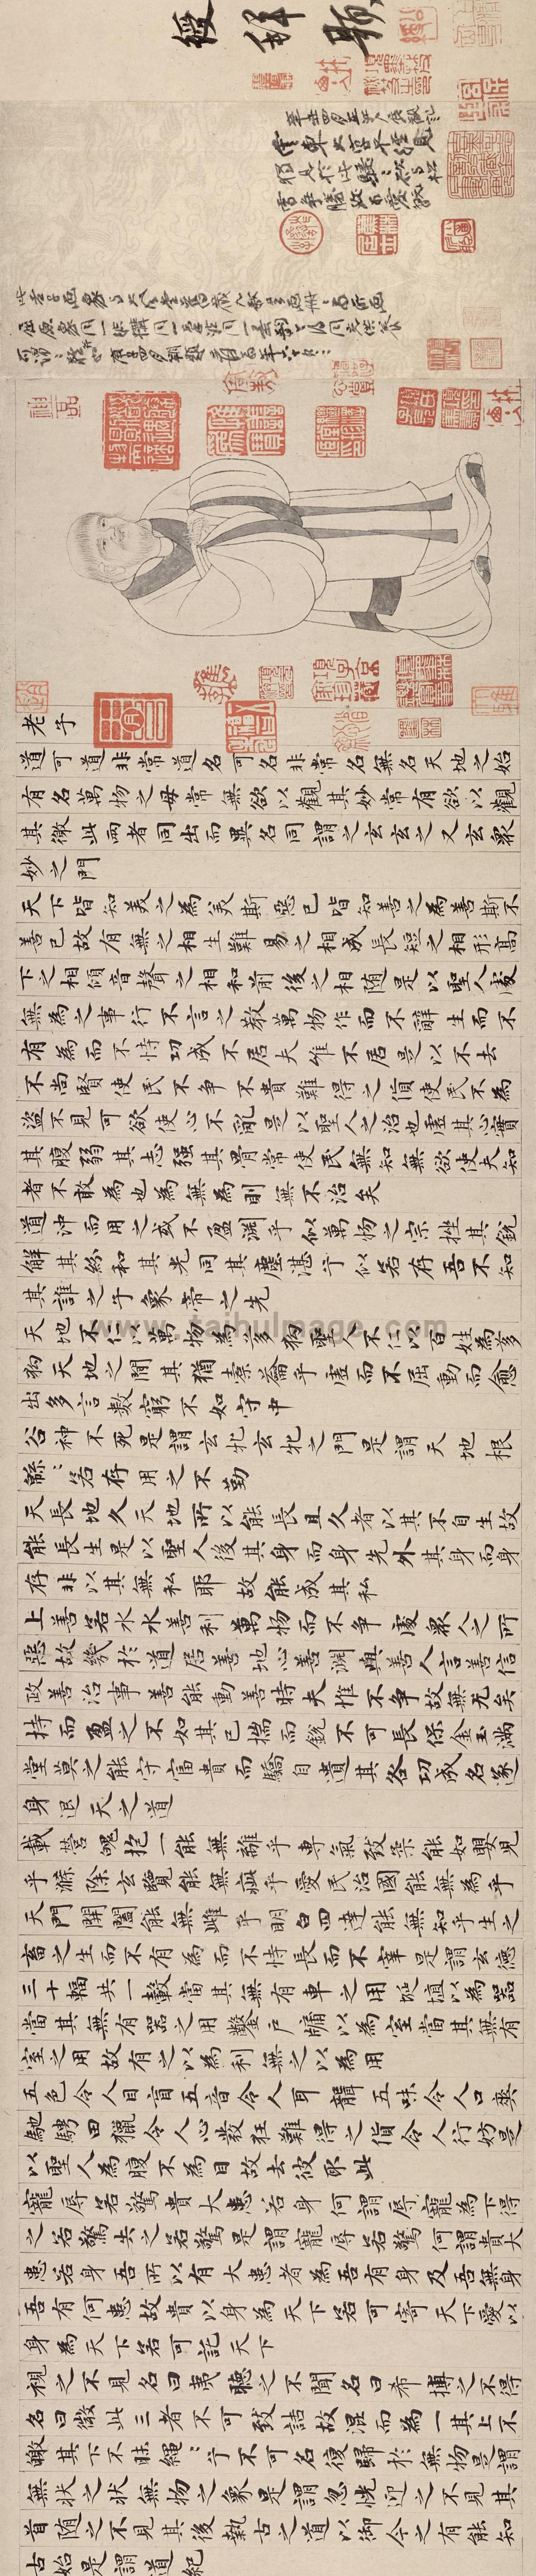 老子
道可道非常道名可名非常名無名天地之始
有名萬物之母常無欲以觀其妙常有欲以觀
其徼此兩者同出而異名同謂之玄玄之又玄衆
妙之門
天下皆知美之為美斯惡已皆知善之為善斯不
善已故有無之相生難易之相成長短之相形高
下之相傾音聲之相和前後之相隨是以聖人處
無為之事行不言之教萬物作而不辭生而不
有為而不恃功成不居夫惟不居是以不去
不尚賢使民不爭不貴難得之貨使民不為
盜不見可欲使心不亂是以聖人之治也虛其心實
其腹弱其志强其骨常使民無知無欲使夫知
者不敢為也為無為則無不治矣
道沖而用之或不盈淵乎似萬物之宗挫其銳
解其紛和其光同其塵湛兮似若存吾不知
其誰之子象帝之先
天地不仁以萬物為芻狗聖人不仁以百姓為芻
狗天地之間其猶橐籥乎虛而不屈動而愈
出多言數窮不如守中
谷神不死是謂玄牝玄牝之門是謂天地根
緜緜若存用之不勤
天長地久天地所以能長且久者以其不自生故
能長生是以聖人後其身而身先外其身而身
存非以其無私耶故能成其私
上善若水水善利萬物而不爭處衆人之所
惡故幾於道居善地心善淵與善人言善信
政善治事善能動善時夫惟不爭故無尤矣
持而盈之不如其已揣而銳不可長保金玉滿
堂莫之能守富貴而驕自遺其咎功成名遂
身退天之道
載營魄抱一能無離乎專氣致柔能如嬰兒
乎滌除玄覽能無疵乎愛民治國能無為乎
天門開闔能無雌乎明白四達能無知乎生之
畜之生而不有為而不恃長而不宰是謂玄德
三十輻共一轂當其無有車之用埏埴以為器
當其無有器之用鑿戶牖以為室當其無有
室之用故有之以為利無之以為用
五色令人目盲五音令人耳聾五味令人口爽
馳騁田獵令人心發狂難得之貨令人行妨是
以聖人為腹不為目故去彼取此
寵辱若驚貴大患若身何謂辱寵為下得
之若驚失之若驚是謂寵辱若驚何謂貴大
患若身吾所以有大患者為吾有身及吾無身
吾有何患故貴以身為天下若可寄天下愛以
身為天下若可託天下
視之不見名曰夷聽之不聞名曰希搏之不得
名曰微此三者不可致詰故混而為一其上不
皦其下不昧繩繩兮不可名復歸於無物是謂
無狀之狀無物之象是謂忽恍迎之不見其
首隨之不見其後執古之道以御今之有能知
古始是謂道紀